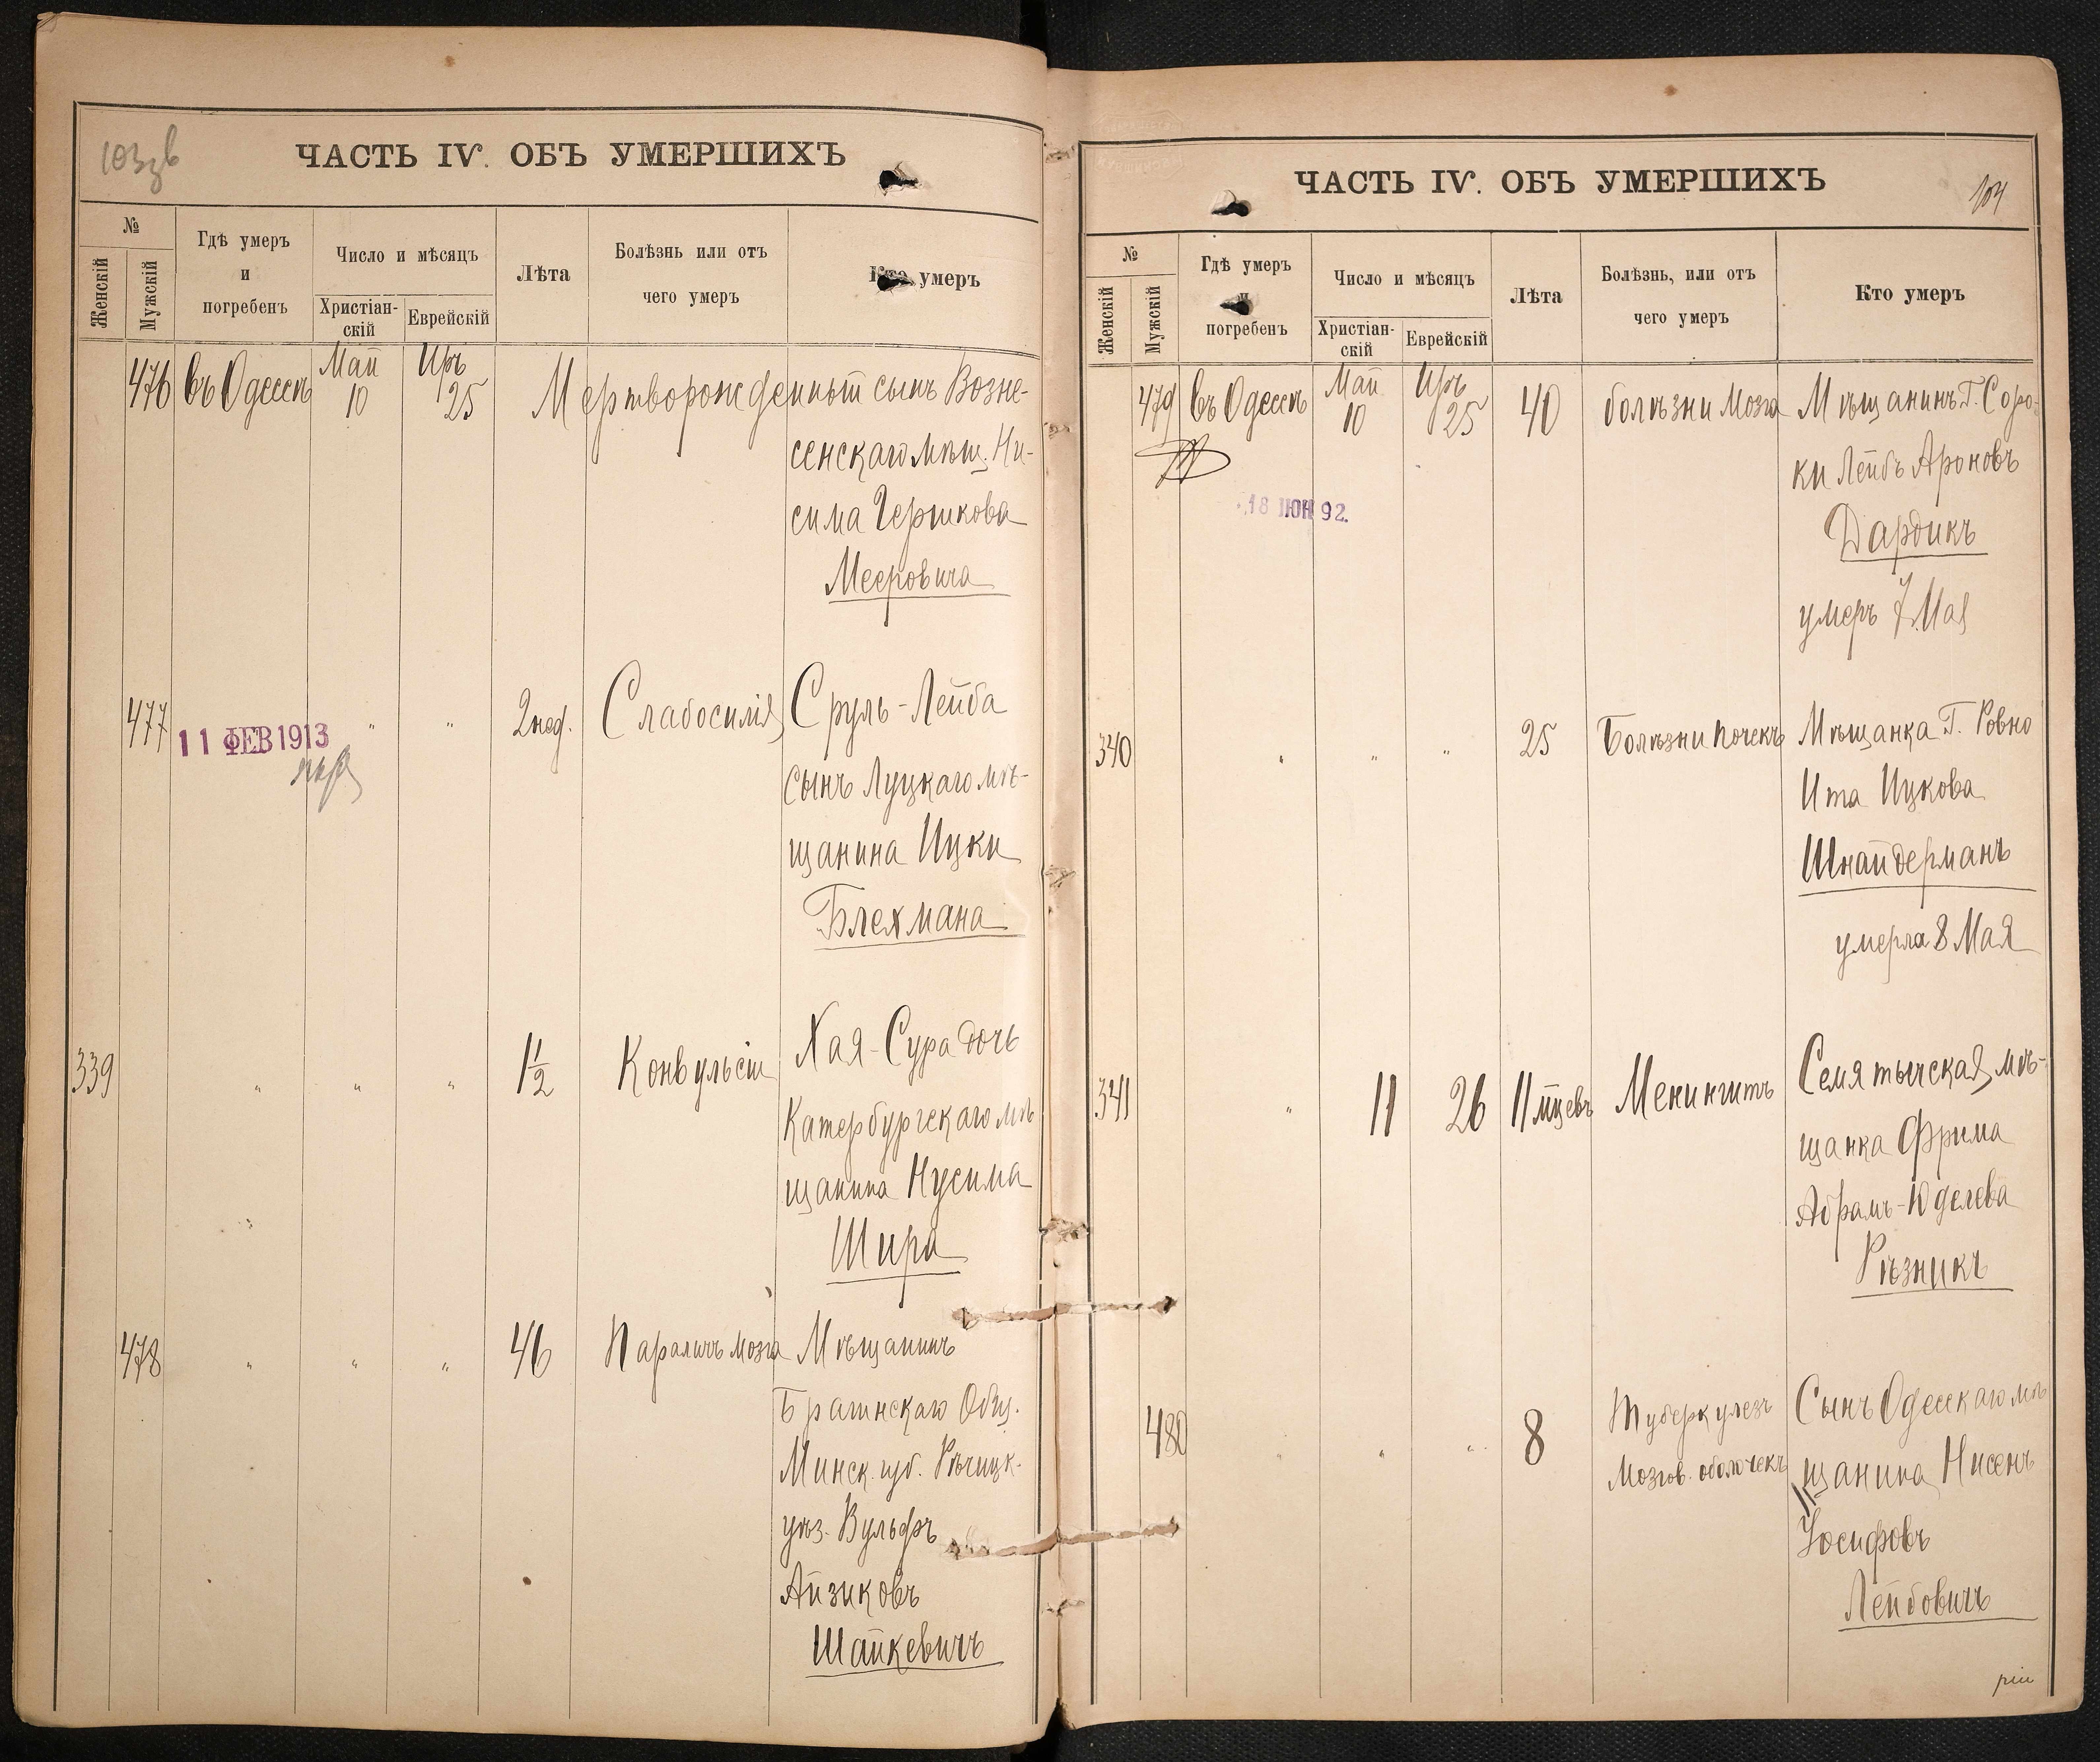 103 зв
ЧАСТЬ IV. ОБЪ УМЕРШИХЪ
№
Женскій
Мужскій
Гдѣ умеръ
и
погребенъ
Число и мѣсяцъ
Христіан-
скій
Еврейскій
Лѣта
Болѣзнь или отъ
чего умеръ
Кто умеръ
476 въ Одессѣ Май 10 Иръ 25 Мертворожденный сынъ Возне-
сенскаго мѣщ. Ни-
сима Гершкова
Мееровича
477 " " 2 нед. Слабосилія Сруль-Лейба
11 ФЕВ 1913
сынъ Луцкаго мѣ-
щанина Ицки
Блехмана
339 " " " 1½ Конвульсіи Хая-Сура дочь
Катербургскаго мѣ
щанина Нусима
Шира
478 " " " 46 Параличъ мозга Мѣщанинъ
Брагинскаго Общ.
Минск. губ. Рѣчицк.
уѣз. Вульфъ
Айзиковъ
Шайкевичъ
ЧАСТЬ IV. ОБЪ УМЕРШИХЪ
104
№
Женскій
Мужскій
Гдѣ умеръ
и
погребенъ
Число и мѣсяцъ
Христіан-
скій
Еврейскій
Лѣта
Болѣзнь, или отъ
чего умеръ
Кто умеръ
479 въ Одессѣ Май 10 Иръ 25 40 болѣзни мозга Мѣщанинъ Г. Соро-
ки Лейбъ Ароновъ
18 ІЮН 92.
Дардикъ
умеръ 7 Мая
340 " " " 25 Болѣзни почекъ Мѣщанка Г. Ровно
Ита Ицкова
Шнайдерманъ
умерла 8 Мая
341 " 11 26 11 мцевъ Менингитъ Семятычская мѣ-
щанка Фрима
Абрамъ-Юделева
Рѣзникъ
480 " " " 8 Туберкулезъ Сынъ Одесскаго мѣ
Мозгов. оболочекъ щанина Нисенъ
Іосифовъ
Лейбовичъ